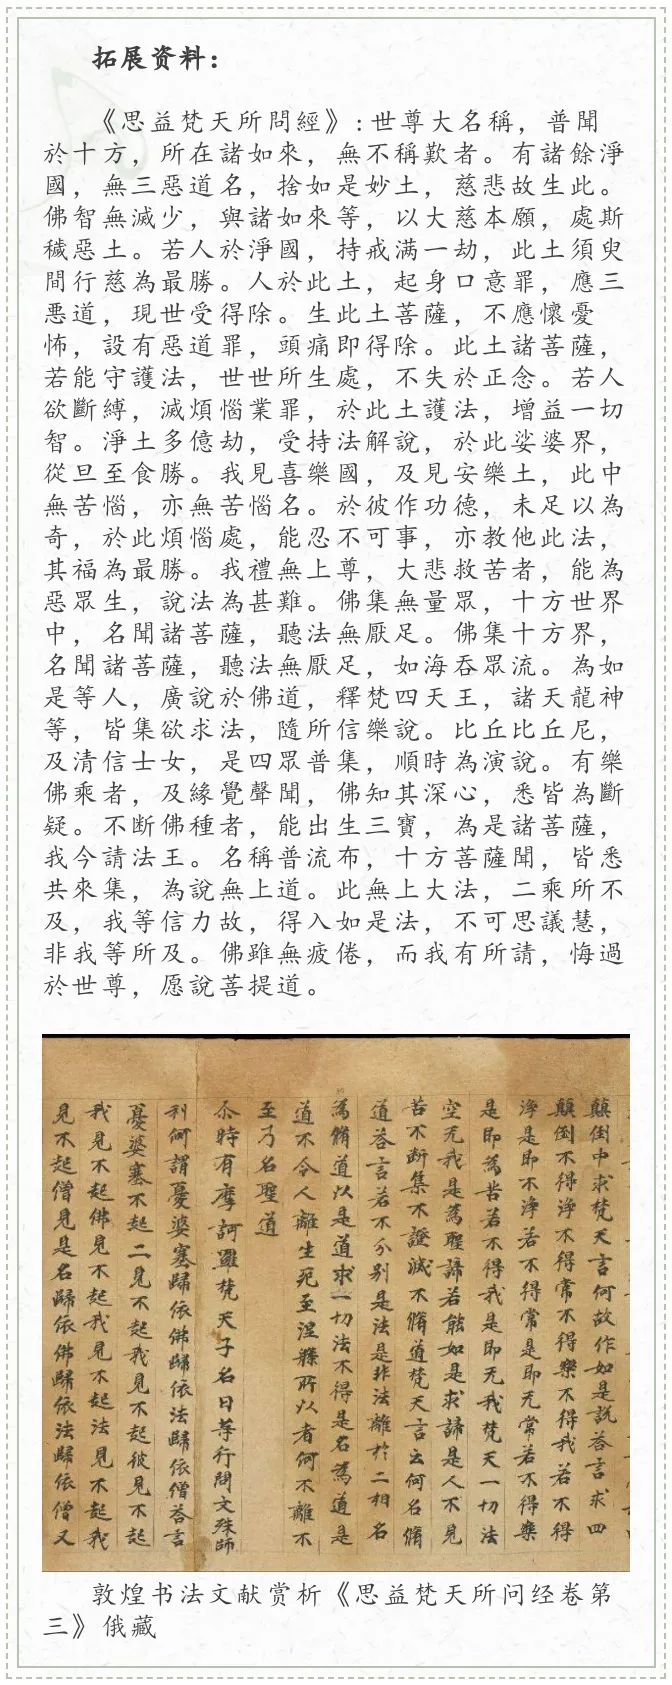 拓展资料：
《思益梵天所問經》：世尊大名稱，普聞
於十方，所在諸如來，無不稱歎者。有諸餘淨
國，無三惡道名，捨如是妙土，慈悲故生此。
佛智無減少，與諸如來等，以大慈本願，處斯
穢惡土。若人於淨國，持戒满一劫，此土須臾
間行慈為最勝。人於此土，起身口意罪，應三
悪道，現世受得除。生此土菩薩，不應懷憂
怖，設有惡道罪，頭痛即得除。此土諸菩薩，
若能守護法，世世所生處，不失於正念。若人
欲斷縛，滅煩惱業罪，於此土護法，增益一切
智。淨土多億劫，受持法解說，於此娑婆界，
從旦至食勝。我見喜樂國，及見安樂土，此中
無苦惱，亦無苦惱名。於彼作功德，未足以為
奇，於此煩惱處，能忍不可事，亦教他此法，
其福為最勝。我禮無上尊，大悲救苦者，能為
惡眾生，說法為甚難。佛集無量眾，十方世界
中，名聞諸菩薩，聽法無厭足。佛集十方界，
名聞諸菩薩，聽法無厭足，如海吞眾流。為如
是等人，廣說於佛道，釋梵四天王，諸天龍神
等，皆集欲求法，隨所信樂說。比丘比丘尼，
及清信士女，是四眾普集，順時為演說。有樂
佛乘者，及緣覺聲聞，佛知其深心，悉皆為斷
疑。不断佛種者，能出生三寶，為是諸菩薩，
我今請法王。名稱普流布，十方菩薩聞，皆悉
共來集，為說無上道。此無上大法，二乘所不
及，我等信力故，得入如是法，不可思議慧，
非我等所及。佛雖無疲倦，而我有所請，悔過
於世尊，愿說菩提道。
顛倒中求梵天言何故作如是説荅言求四
顛倒不得淨不得常不得樂不得我若不得
淨是即不淨若不得常是即无常若不得樂
是即為苦若不得我是即无我梵天一切法
空无我是為聖諦若能如是求諦是人不見
苦不断集不證滅不脩道梵天言云何名脩
道荅言若不分别是法是非法離於二相名
為脩道以是道求一切法不得是名為道是
道不令人離生死至涅槃所以者何不離不
至乃名聖道
尒時有摩訶羅梵天子名曰等行問文殊師
利何謂憂婆塞歸依佛歸依法歸依僧荅言
憂婆塞不起二見不起我見不起彼見不起
我見不起佛見不起我見不起法見不起我
見不起僧見是名歸依佛歸依法歸依僧又
敦煌书法文献赏析《思益梵天所问经卷第
三》俄藏